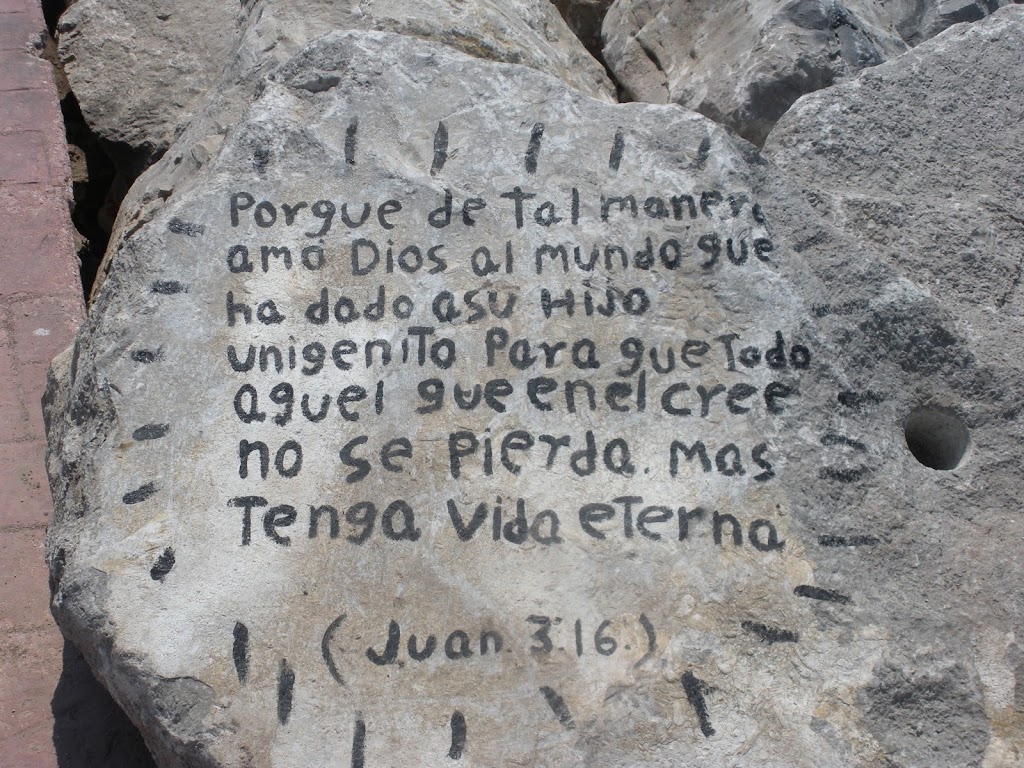 Porque de Tal manera
amó Dios al mundo que
ha dado asu Hijo
unigeniTo Para que Todo
aquel que en el cree
no se pierda. mas
Tenga vida eTerna
(Juan. 3.16.)